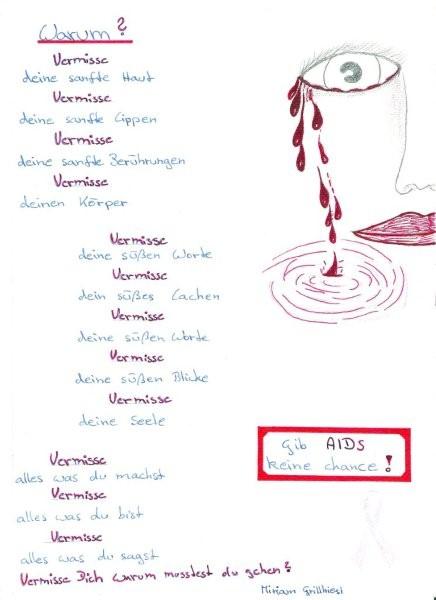 Warum?
Vermisse
deine sanfte Haut
Vermisse
deine sanfte Lippen
Vermisse
deine sanfte Berührungen
Vermisse
deinen Körper
Vermisse
deine süßen Worte
Vermisse
dein süßes Lachen
Vermisse
deine süßen Worte
Vermisse
deine süßen Blicke
Vermisse
deine Seele
Vermisse
alles was du machst
Vermisse
alles was du bist
Vermisse
alles was du sagst
Vermisse Dich warum musstest du gehen?
Gib AIDS
keine chance!
Miriam